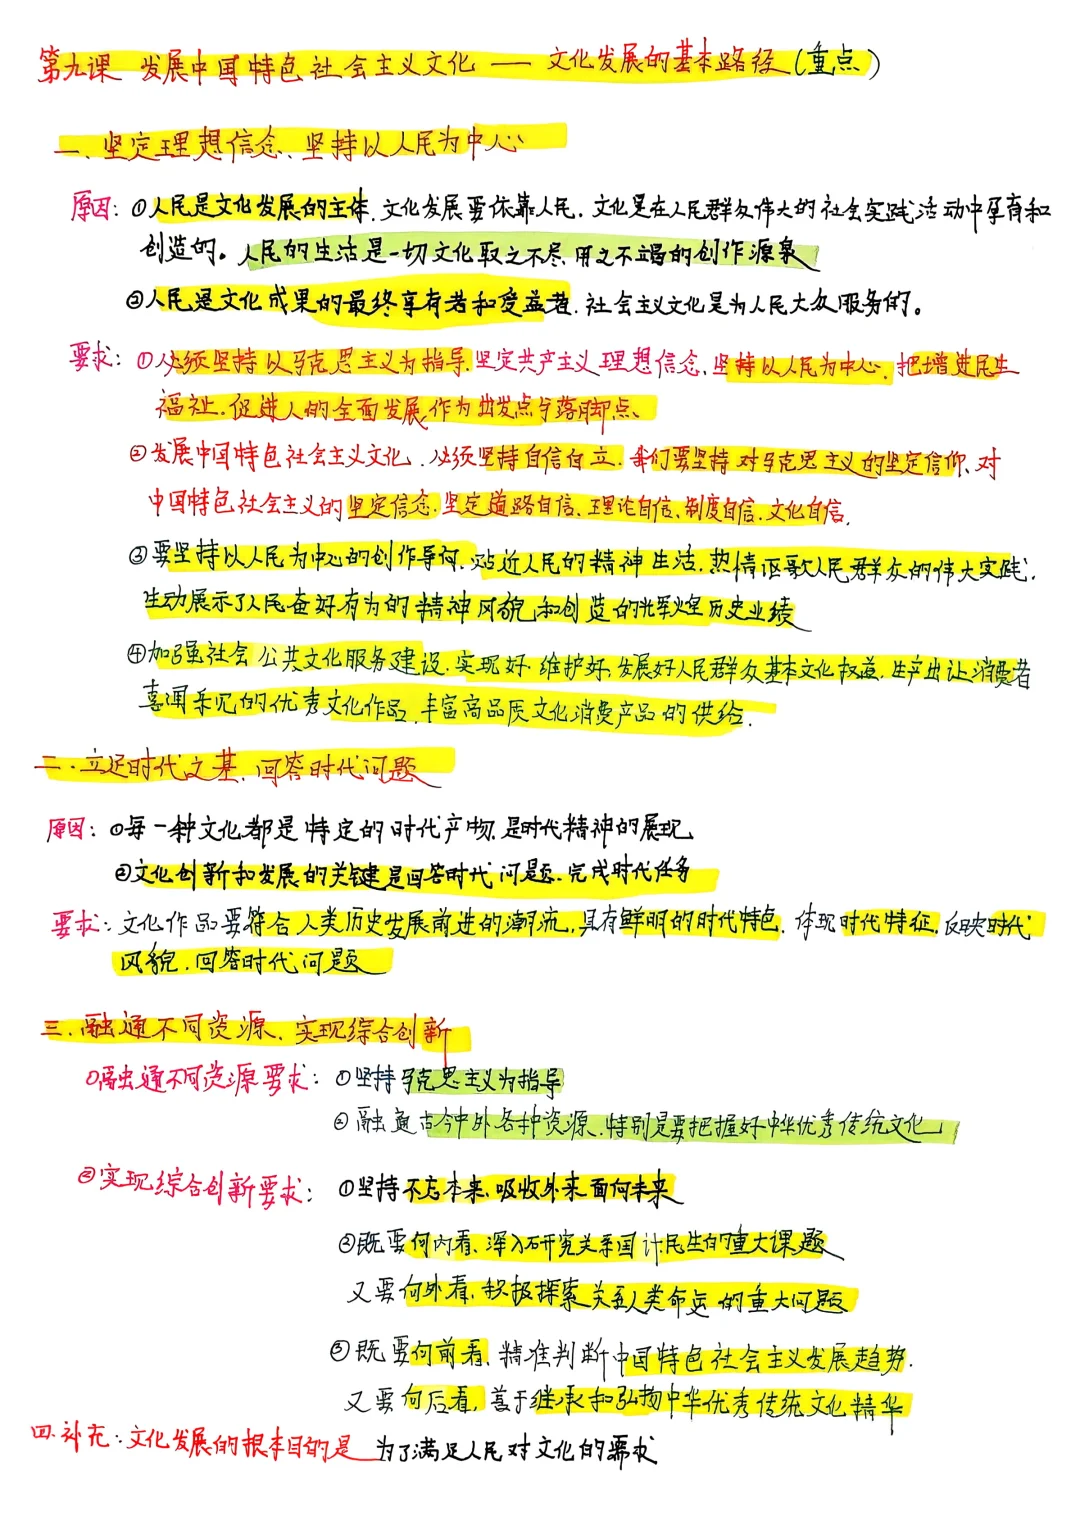 第九课 发展中国特色社会主义文化 — 文化发展的基本路径(重点)
一、坚定理想信念、坚持以人民为中心
原因: ①人民是文化发展的主体,文化发展要依靠人民,文化是在人民群众伟大的社会实践活动中孕育和
创造的。人民的生活是一切文化取之不尽,用之不竭的创作源泉
②人民是文化成果的最终享有者和受益者,社会主义文化是为人民大众服务的。
要求: ①必须坚持以马克思主义为指导,坚定共产主义理想信念、坚持以人民为中心,把增进民生
福祉、促进人的全面发展作为出发点与落脚点、
②发展中国特色社会主义文化,必须坚持自信自立,我们要坚持对马克思主义的坚定信仰、对
中国特色社会主义的坚定信念,坚定道路自信、理论自信、制度自信、文化自信,
③要坚持以人民为中心的创作导向,贴近人民的精神生活,热情讴歌人民群众的伟大实践,
生动展示了人民奋好有为的精神风貌和创造的光辉历史业绩
④加强社会公共文化服务建设,实现好、维护好、发展好人民群众基本文化权益,生产出让消费者
喜闻乐见的优秀文化作品,丰富高品质文化消费产品的供给,
二.立足时代之基,回答时代问题
原因: ①每一种文化都是特定的时代产物,是时代精神的展现
②文化创新和发展的关键是回答时代问题、完成时代任务
要求: 文化作品要符合人类历史发展前进的潮流,具有鲜明的时代特色,体现时代特征,反映时代
风貌,回答时代问题
三.融通不同资源、实现综合创新
①融通不同资源要求: ①坚持马克思主义为指导
②融通古今中外各种资源,特别是要把握好中华优秀传统文化
②实现综合创新要求: ①坚持不忘本来、吸收外来、面向未来
②既要向内看、深入研究关系国计民生的重大课题
又要向外看,积极探索关系人类命运的重大问题
③既要向前看、精准判断中国特色社会主义发展趋势,
又要向后看,善于继承和弘扬中华优秀传统文化精华
四.补充: 文化发展的根本目的是 为了满足人民对文化的需求